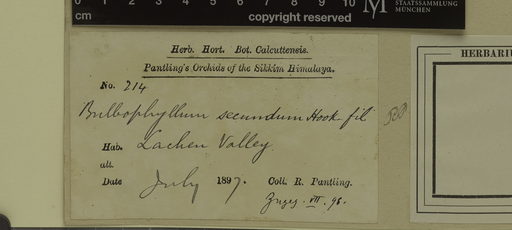 0 1 2 3 4 5 6 7 8 9 10
cm
copyright reserved
STAATSSAMMLUNG
MÜNCHEN
Herb. Hort. Bot. Calcuttensis.
Pantling's Orchids of the Sikkim Himalaya.
HERBARIU
No. 214
Bulbophyllum secundum Hook fil
Hab. Lachen Valley.
alt.
Date July 1897. Coll. R. Pantling.
VII. 98.